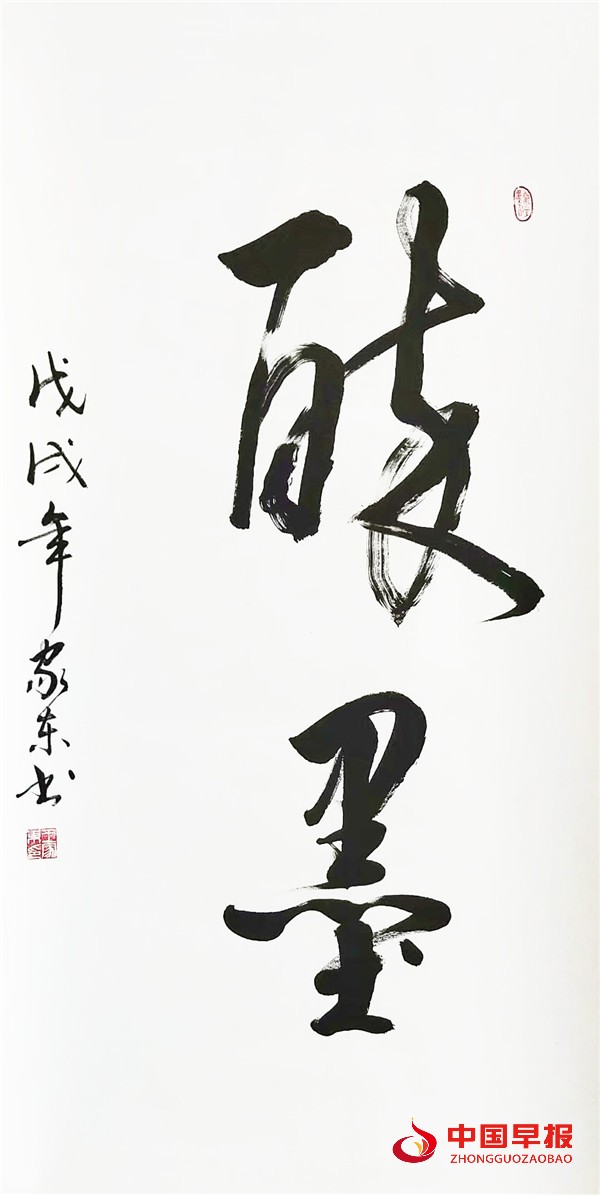 醉墨
戊戌年家东书
中国早报
ZHONGGUOZAOBAO